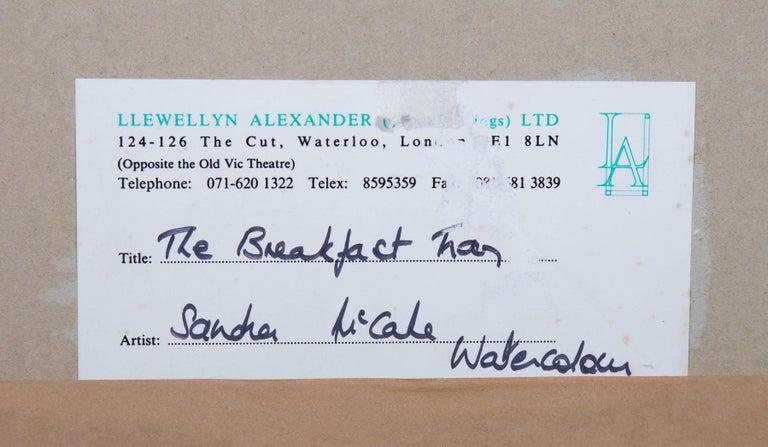 LLEWELLYN ALEXANDER LTD
124-126 The Cut, Waterloo, E1 8LN
(Opposite the Old Vic Theatre)
Telephone: 071-620 1322 Telex: 8595359 3839
Title: The Breakfast Tray
Artist: Sandra
Watercolour
LA